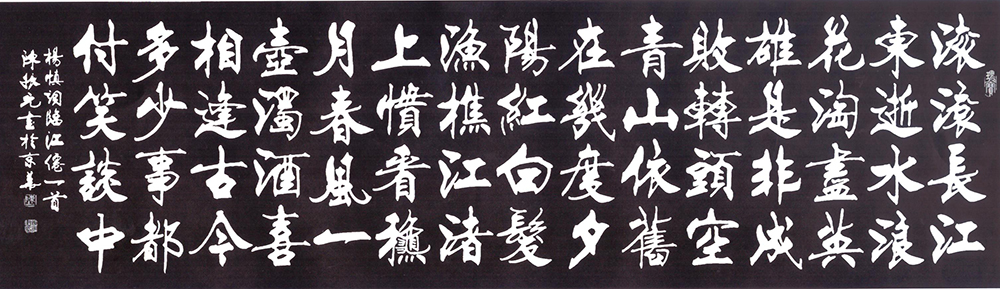 滚滚長江
東逝水浪
花淘盡英
雄是非成
敗轉頭空
青山依舊
在幾度夕
陽紅白髮
漁樵江渚
上慣看龝
月春風一
壺濁酒喜
相逢古今
多少事都
付笑談中
楊慎詞臨江僊一首
書於京華